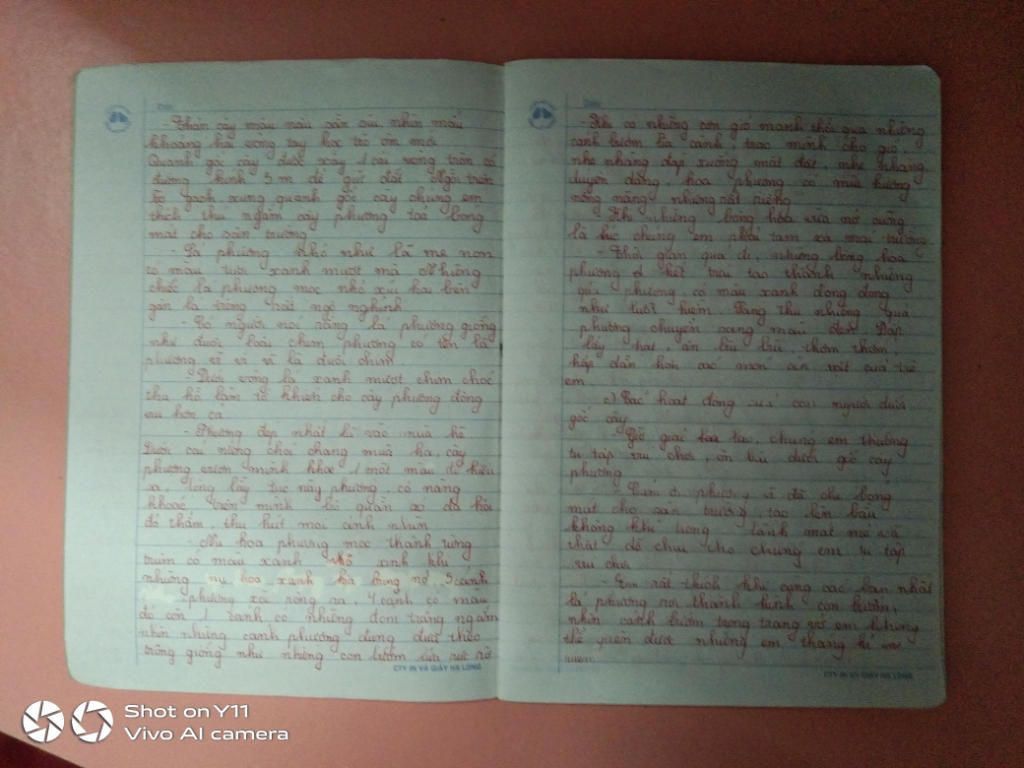 - Thân cây màu nâu sần sùi nhìn mấu
khoảng hai vòng tay học trò ôm mới
Quanh gốc cây được xây 1 cái vòng tròn có
đường kính 5 m để giữ đất. Ngồi trên
bồ gạch xung quanh gốc cây chúng em
thích thú ngắm cây phượng toả bóng
mát cho sân trường.
- Lá phượng nhỏ như lá me non
có màu tươi xanh mượt mà. Những
chiếc lá phượng mọc nhỏ xíu hai bên
gân lá trông rất ngộ nghĩnh
- Có người nói rằng lá phượng giống
như đuôi loài chim phượng có tên là
phượng vĩ vì vĩ là đuôi chim.
- Dưới vòng lá xanh mượt chim chóc
thu hồ làm tổ khiến cho cây phượng đông
vui hơn cả
- Phượng đẹp nhất là vào mùa hè
Dưới cái nắng chói chang mùa hạ, cây
phượng vươn mình khoe 1 một màu đỏ kiêu
sa, lộng lẫy lúc này phượng, cô nàng
khoác trên mình bộ quần áo dạ hội
đỏ thắm, thu hút mọi ánh nhìn
- Nụ hoa phượng mọc thành từng
trùm có màu xanh nhỏ xinh khi
những nụ hoa xanh bung nở, 5 cánh
phượng xoè rộng ra, 4 cánh có màu
đỏ còn 1 cánh có những đốm trắng ngắm
nhìn những cánh phượng đung đưa theo
trông giống như những con bướm lửa rực rỡ
CTY IN VÀ GIẤY HẠ LONG
- Khi có những cơn gió mạnh thổi qua những
cánh bướm lìa cành, trao mình cho gió
nhẹ nhàng đáp xuống mặt đất, nhẹ nhàng
duyên dáng, hoa phượng có mùi hương
nồng nàng nhưng rất riêng
- Khi những bông hoa vừa nở cũng
là lúc chúng em phải tạm xa mái trường
- Thời gian qua đi, những bông hoa
phượng kết trái tạo thành những
quả phượng, có màu xanh dong dỏng
như lưỡi liềm. Sang thu những quả
phượng chuyển sang màu đen. Đập
lấy hạt, ăn bùi bùi, thơm thơm,
hấp dẫn hơn các món ăn vặt của trẻ
em
c) Các hoạt động của con người dưới
gốc cây
- Giờ giải lao, chúng em thường
tụ tập vui chơi, ôn bài dưới gốc cây
phượng
phượng vĩ đã che bóng
mát cho sân trường, tạo lên bầu
không khí trong lành mát mẻ và
thật dễ chịu cho chúng em tụ tập
vui chơi
- Em rất thích khi cùng các bạn nhặt
lá phượng rơi thành hình con bướm,
nhìn cánh bướm trong trang vở em không
thể quên được những em tháng kỉ
niệm
CTY IN VÀ GIẤY HẠ LONG
Shot on Y11
Vivo AI camera